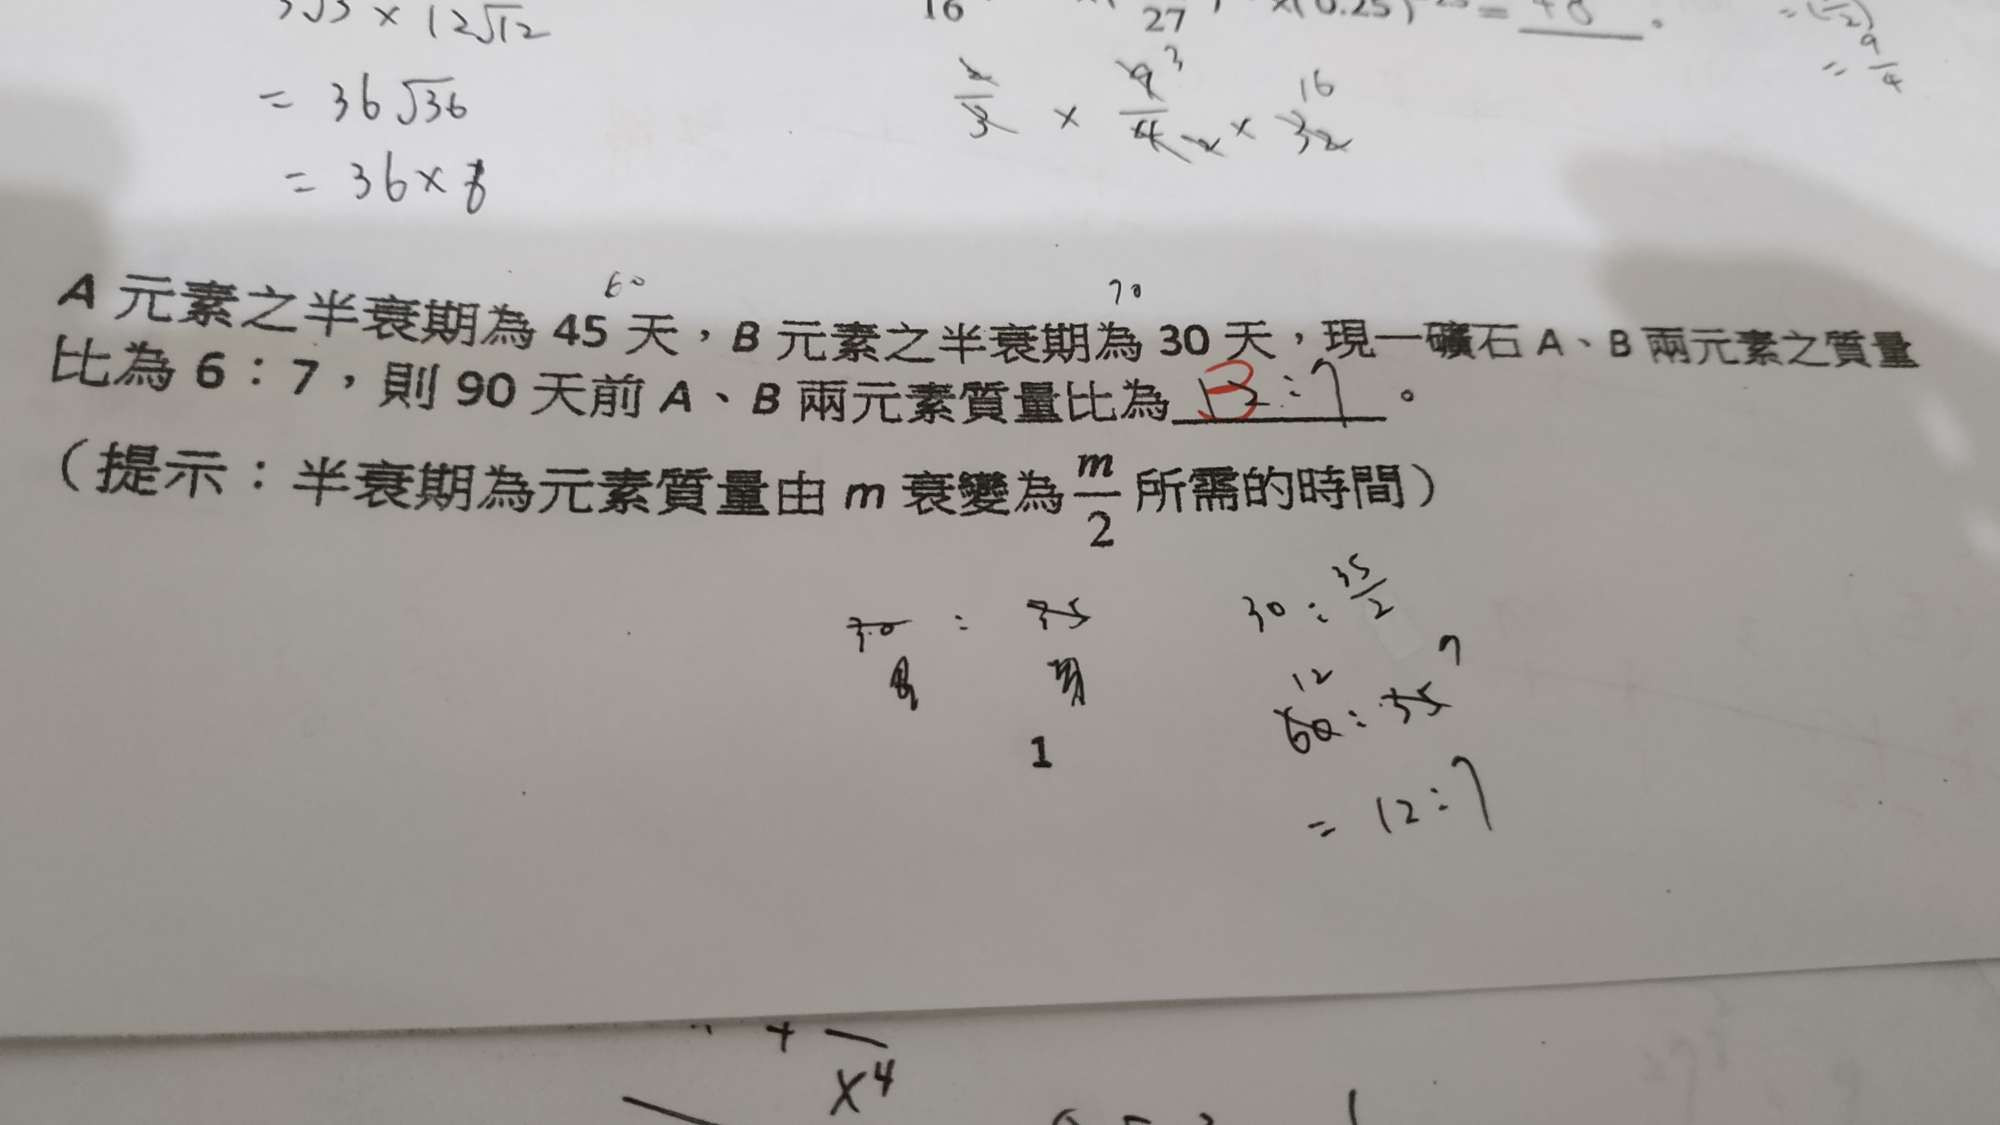 3√3 × 12√12
= 36√36
= 36×6
16
27
×(0.25)
= 48 。
2/3 × 9/4 × 32
3
2
16
= 9/4
60
70
A 元素之半衰期為 45 天，B 元素之半衰期為 30 天，現一礦石 A、B 兩元素之質量
比為 6：7，則 90 天前 A、B 兩元素質量比為 12:7 。
（提示：半衰期為元素質量由 m 衰變為 m/2 所需的時間）
30 : 35
30 : 35/2
12 7
60 : 35
= 12:7
1
+
x⁴